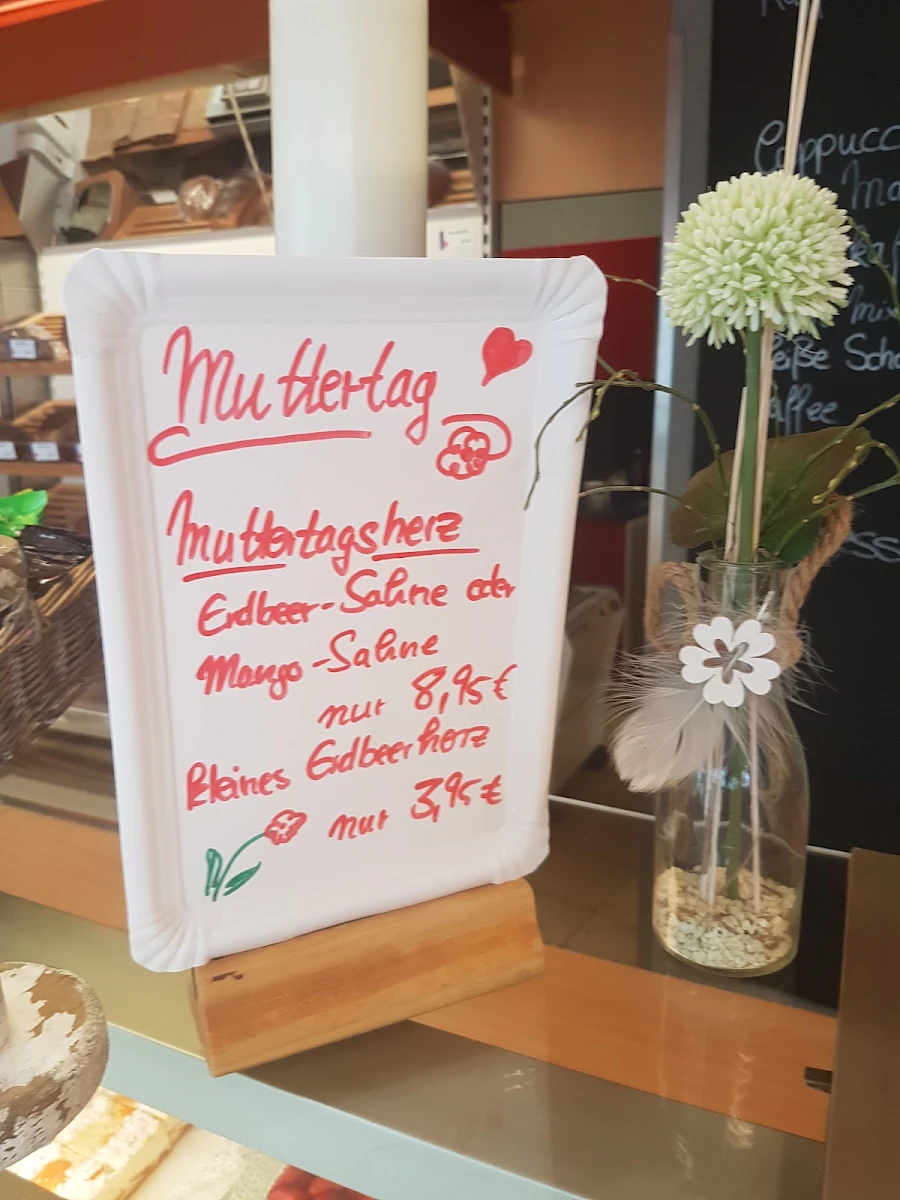 Muttertag
Muttertagsherz
Erdbeer-Sahne oder
Mango-Sahne
nur 8,95€
kleines Erdbeerherz
nur 3,95€
Cappucc
Ma
kaf
mix
eiße Scho
affee